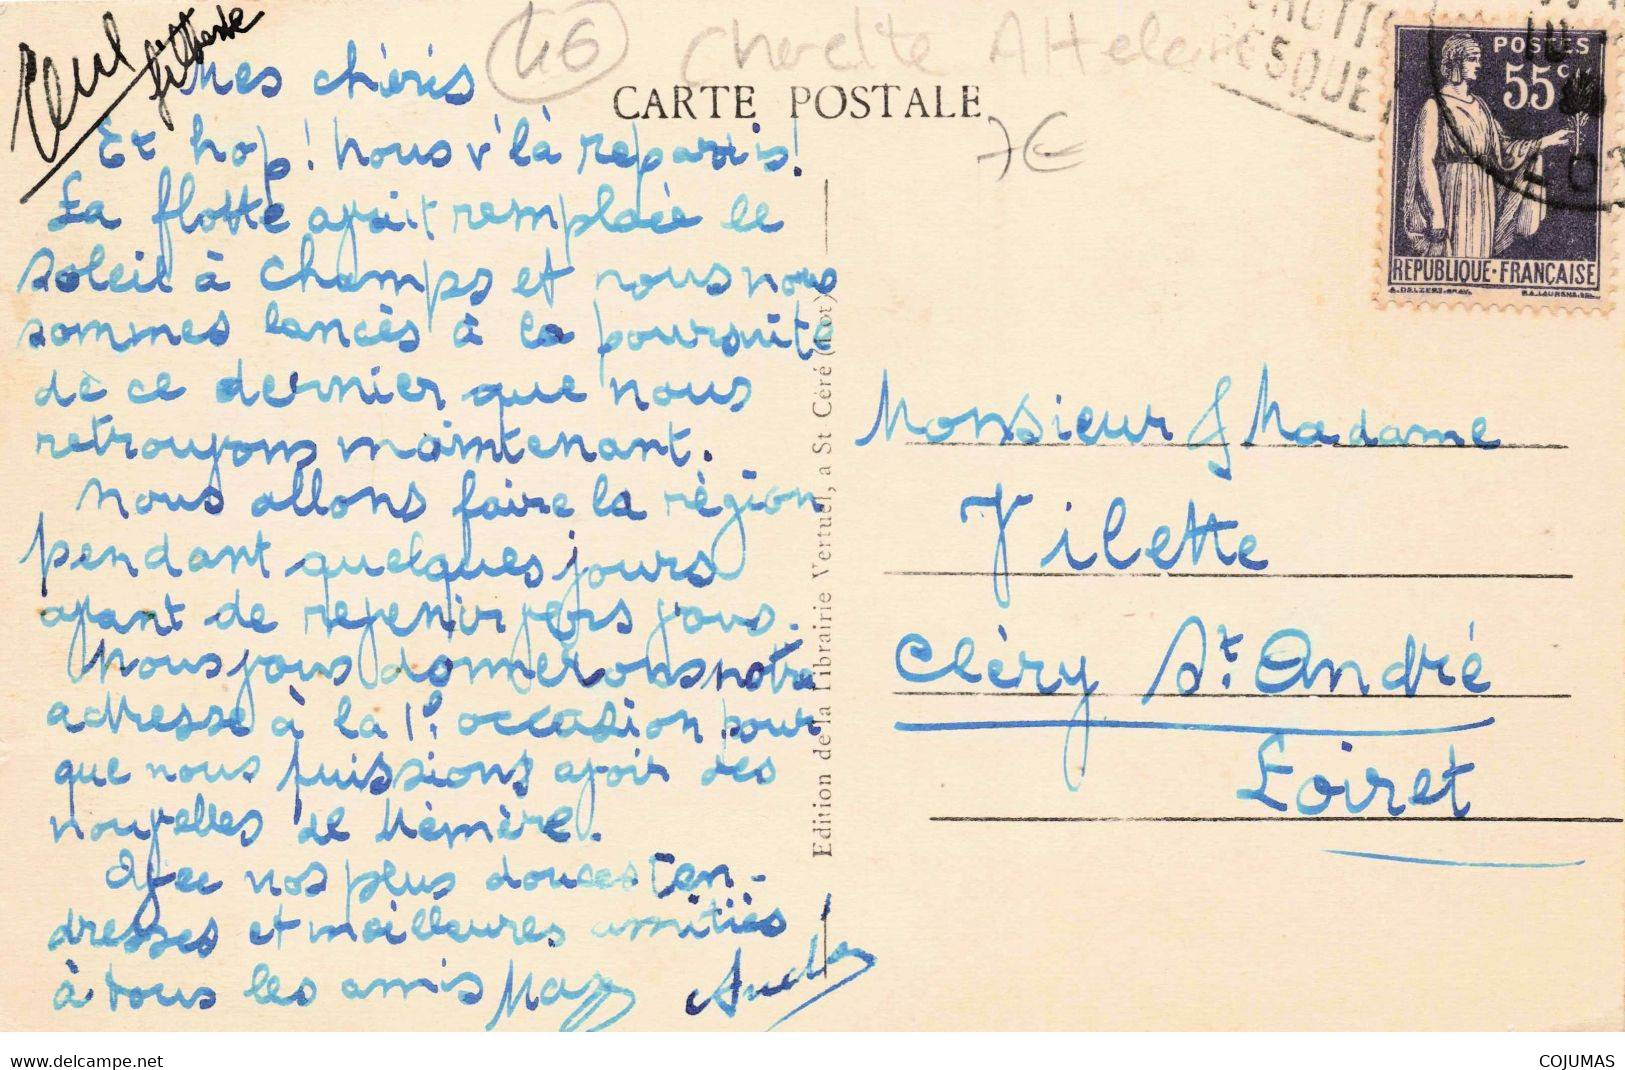 46 Charette Attelage
Mes chéris
CARTE POSTALE
7€
Et hop! Nous v'là repartis!
La flotte ayait remplacée le
soleil à Champs et nous nous
sommes lancés à la poursuite
de ce dernier que nous
retrouvons maintenant.
Nous allons faire la région
pendant quelques jours
avant de revenir vers vous.
Nous vous donnerons notre
adresse à la 1e occasion pour
que nous puissions avoir des
nouvelles de Mémère.
Avec nos plus douces ten-
dresses et meilleures amitiés
à tous les amis
Edition de la Librairie Vertuel, a St-Céré (Lot)
ESQUE
POSTES
55c
REPUBLIQUE·FRANÇAISE
Monsieur & Madame
Vilette
Cléry St. André
Loiret
www.delcampe.net
COJUMAS